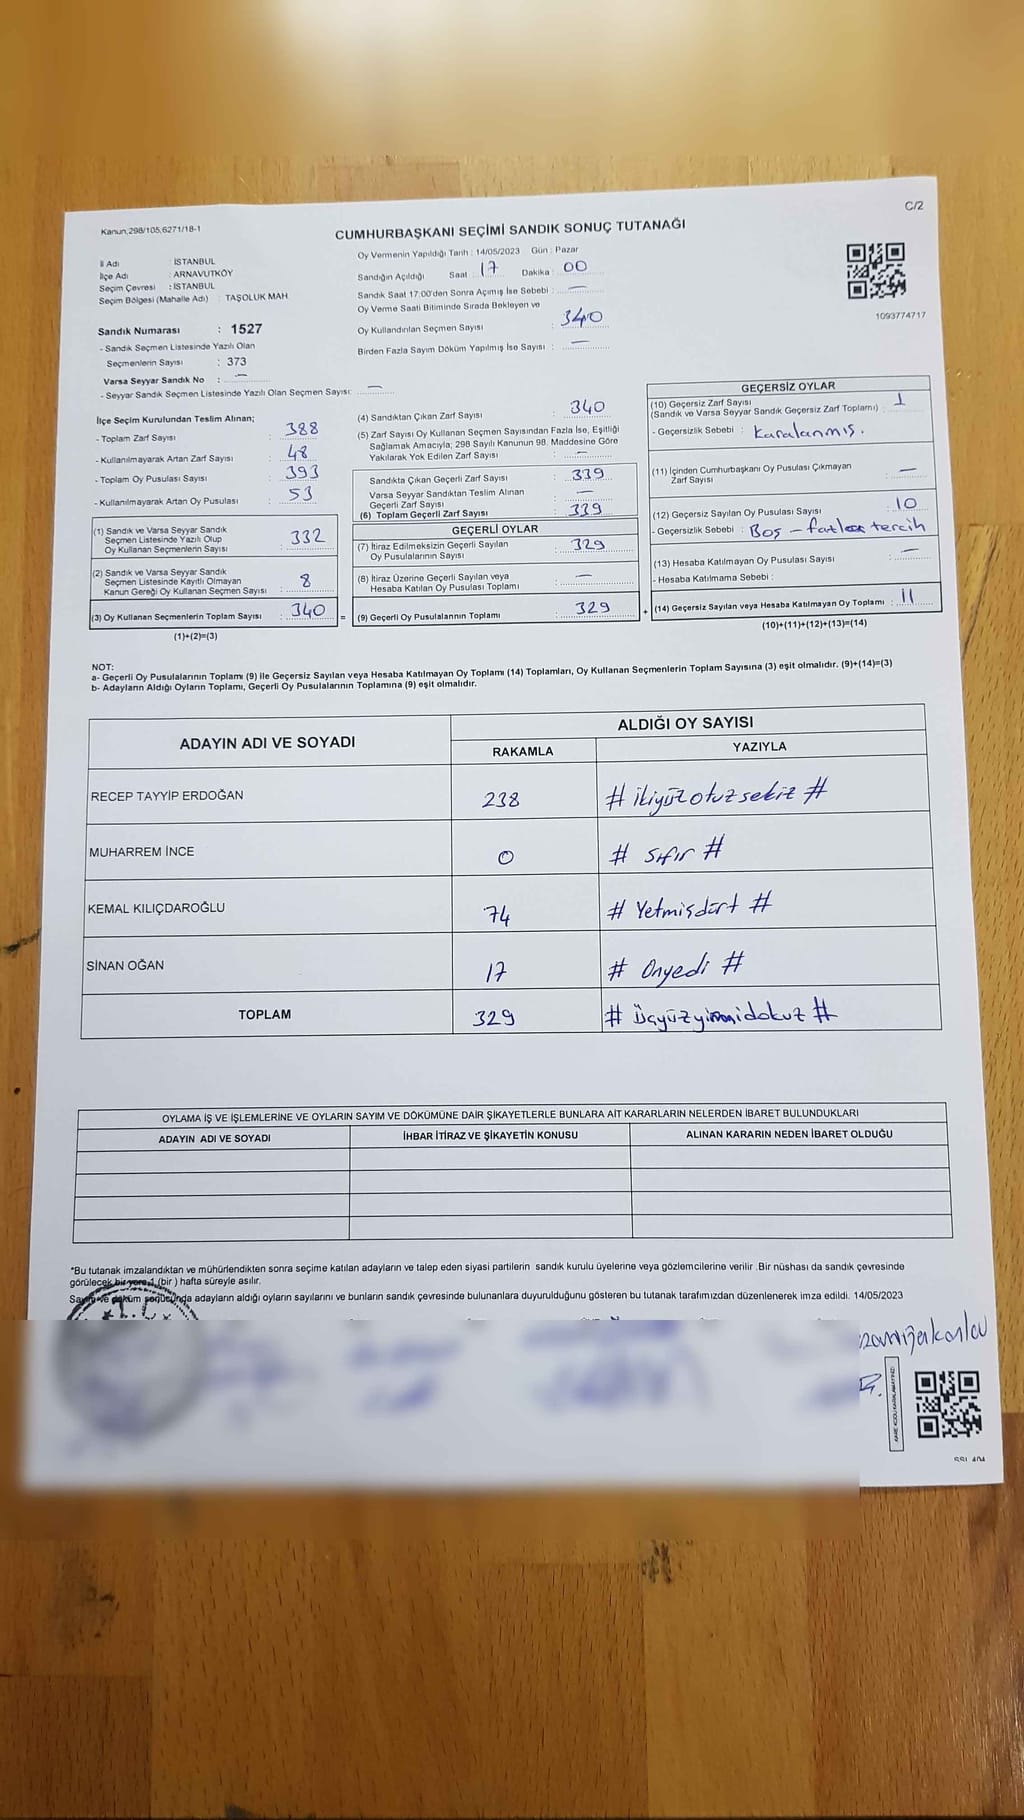 C/2
Kanun;298/105,6271/18-1
CUMHURBAŞKANI SEÇİMİ SANDIK SONUÇ TUTANAĞI
İl Adı : İSTANBUL
İlçe Adı : ARNAVUTKÖY
Seçim Çevresi : İSTANBUL
Seçim Bölgesi (Mahalle Adı) : TAŞOLUK MAH
Sandık Numarası : 1527
- Sandık Seçmen Listesinde Yazılı Olan
Seçmenlerin Sayısı : 373
Varsa Seyyar Sandık No : —
- Seyyar Sandık Seçmen Listesinde Yazılı Olan Seçmen Sayısı: —
Oy Vermenin Yapıldığı Tarih : 14/05/2023 Gün : Pazar
Sandığın Açıldığı Saat : 17 Dakika : 00
Sandık Saat 17:00'den Sonra Açımış İse Sebebi : —
Oy Verme Saati Bitiminde Sırada Bekleyen ve
Oy Kullandırılan Seçmen Sayısı : 340
Birden Fazla Sayım Döküm Yapılmış İse Sayısı : —
1093774717
İlçe Seçim Kurulundan Teslim Alınan;
- Toplam Zarf Sayısı : 388
- Kullanılmayarak Artan Zarf Sayısı : 48
- Toplam Oy Pusulası Sayısı : 393
- Kullanılmayarak Artan Oy Pusulası : 53
(1) Sandık ve Varsa Seyyar Sandık
Seçmen Listesinde Yazılı Olup
Oy Kullanan Seçmenlerin Sayısı : 332
(2) Sandık ve Varsa Seyyar Sandık
Seçmen Listesinde Kayıtlı Olmayan
Kanun Gereği Oy Kullanan Seçmen Sayısı : 8
(3) Oy Kullanan Seçmenlerin Toplam Sayısı : 340 =
(1)+(2)=(3)
(4) Sandıktan Çıkan Zarf Sayısı : 340
(5) Zarf Sayısı Oy Kullanan Seçmen Sayısından Fazla İse, Eşitliği
Sağlamak Amacıyla; 298 Sayılı Kanunun 98. Maddesine Göre
Yakılarak Yok Edilen Zarf Sayısı : —
Sandıkta Çıkan Geçerli Zarf Sayısı : 339
Varsa Seyyar Sandıktan Teslim Alınan
Geçerli Zarf Sayısı : —
(6) Toplam Geçerli Zarf Sayısı : 339
GEÇERLİ OYLAR
(7) İtiraz Edilmeksizin Geçerli Sayılan
Oy Pusulalarının Sayısı : 329
(8) İtiraz Üzerine Geçerli Sayılan veya
Hesaba Katılan Oy Pusulası Toplamı : —
(9) Geçerli Oy Pusulalarının Toplamı : 329 +
GEÇERSİZ OYLAR
(10) Geçersiz Zarf Sayısı
(Sandık ve Varsa Seyyar Sandık Geçersiz Zarf Toplamı) : 1
- Geçersizlik Sebebi : Karalanmış.
(11) İçinden Cumhurbaşkanı Oy Pusulası Çıkmayan
Zarf Sayısı : —
(12) Geçersiz Sayılan Oy Pusulası Sayısı : 10
- Geçersizlik Sebebi : Boş – tercih
(13) Hesaba Katılmayan Oy Pusulası Sayısı : —
- Hesaba Katılmama Sebebi :
(14) Geçersiz Sayılan veya Hesaba Katılmayan Oy Toplamı : 11
(10)+(11)+(12)+(13)=(14)
NOT:
a- Geçerli Oy Pusulalarının Toplamı (9) ile Geçersiz Sayılan veya Hesaba Katılmayan Oy Toplamı (14) Toplamları, Oy Kullanan Seçmenlerin Toplam Sayısına (3) eşit olmalıdır. (9)+(14)=(3)
b- Adayların Aldığı Oyların Toplamı, Geçerli Oy Pusulalarının Toplamına (9) eşit olmalıdır.
ADAYIN ADI VE SOYADI ALDIĞI OY SAYISI
RAKAMLA YAZIYLA
RECEP TAYYİP ERDOĞAN 238 # ikiyüzotuzsekiz #
MUHARREM İNCE 0 # sıfır #
KEMAL KILIÇDAROĞLU 74 # Yetmişdört #
SİNAN OĞAN 17 # Onyedi #
TOPLAM 329 # Üçyüzyirmidokuz #
OYLAMA İŞ VE İŞLEMLERİNE VE OYLARIN SAYIM VE DÖKÜMÜNE DAİR ŞİKAYETLERLE BUNLARA AİT KARARLARIN NELERDEN İBARET BULUNDUKLARI
ADAYIN ADI VE SOYADI İHBAR İTİRAZ VE ŞİKAYETİN KONUSU ALINAN KARARIN NEDEN İBARET OLDUĞU
*Bu tutanak imzalandıktan ve mühürlendikten sonra seçime katılan adayların ve talep eden siyasi partilerin sandık kurulu üyelerine veya gözlemcilerine verilir .Bir nüshası da sandık çevresinde
görülecek bir yere 1 (bir ) hafta süreyle asılır.
Sayım ve döküm sonucunda adayların aldığı oyların sayılarını ve bunların sandık çevresinde bulunanlara duyurulduğunu gösteren bu tutanak tarafımızdan düzenlenerek imza edildi. 14/05/2023